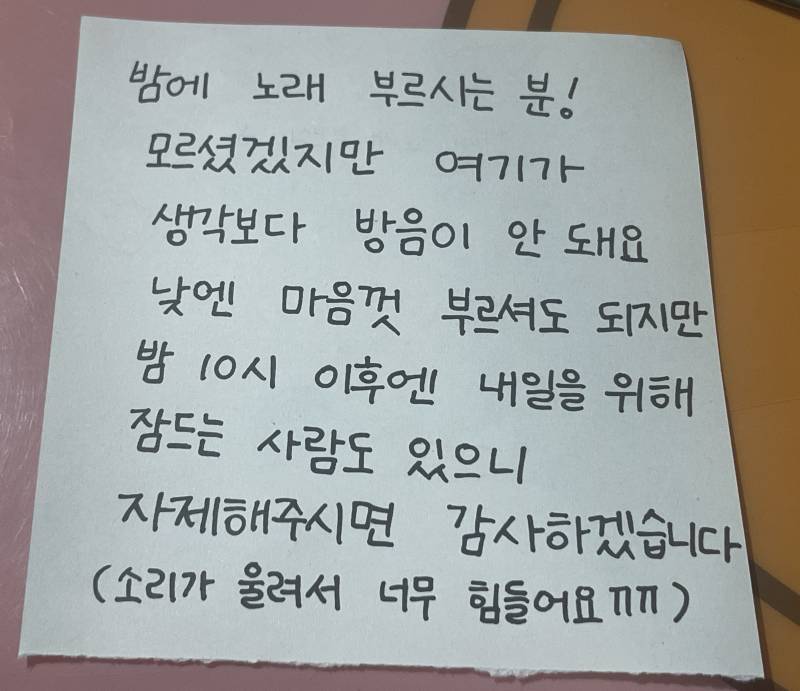 밤에 노래 부르시는 분!
모르셨겠지만 여기가
생각보다 방음이 안 돼요
낮엔 마음껏 부르셔도 되지만
밤 10시 이후엔 내일을 위해
잠드는 사람도 있으니
자제해주시면 감사하겠습니다
(소리가 울려서 너무 힘들어요ㅠㅠ)